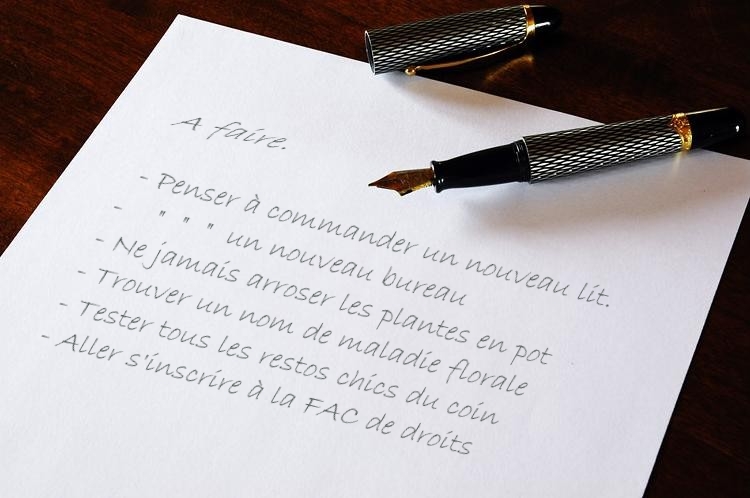 A faire.
- Penser à commander un nouveau lit.
- " " " un nouveau bureau
- Ne jamais arroser les plantes en pot
- Trouver un nom de maladie florale
- Tester tous les restos chics du coin
- Aller s'inscrire à la FAC de droits